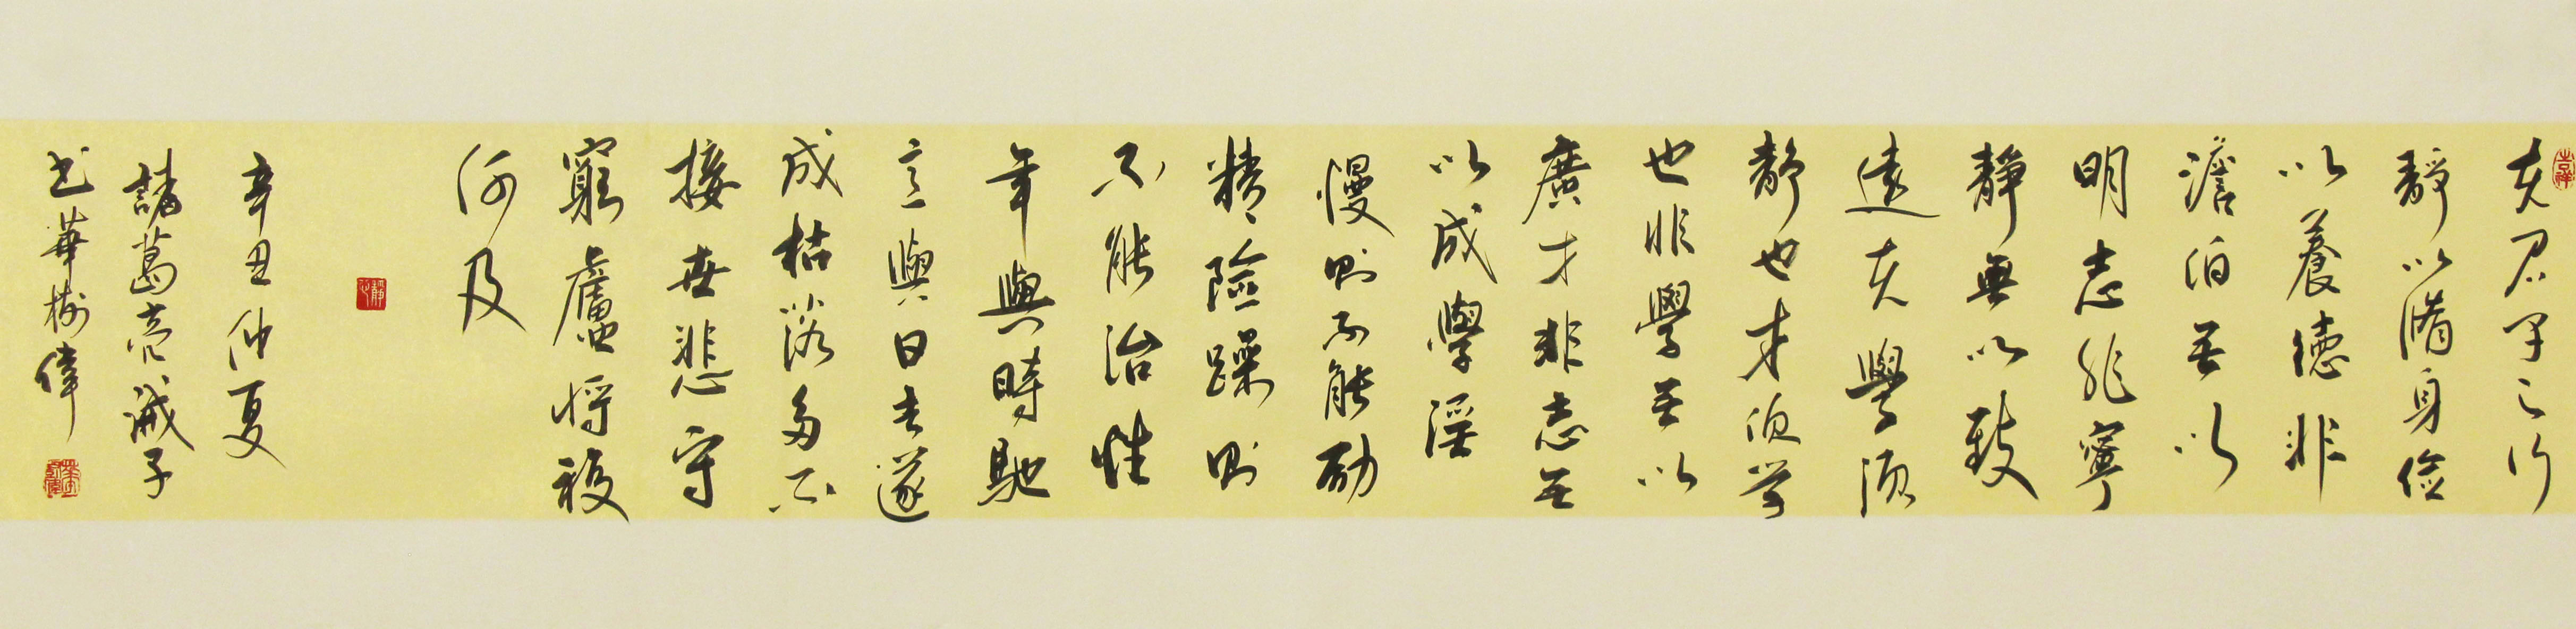 夫君子之行
靜以脩身儉
以養德非
澹泊无以
明志非寧
靜無以致
遠夫學須
靜也才須学
也非學无以
廣才非志无
以成學淫
慢則不能励
精險躁則
不能治性
年與時馳
意與日去遂
成枯落多不
接世悲守
窮廬將復
何及
辛丑仲夏
諸葛亮誡子
书華樹偉